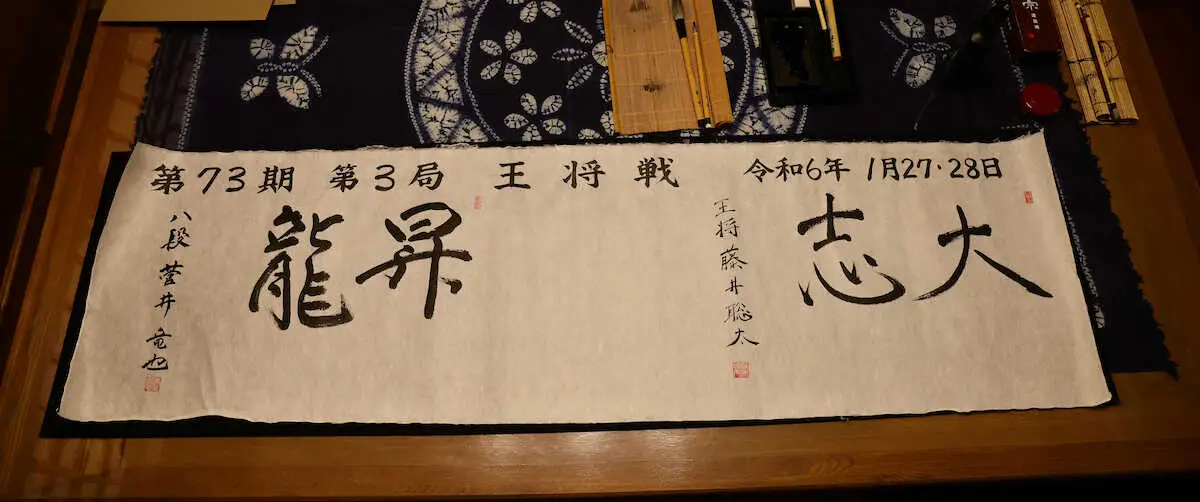 第73期 第3局 王将戦 令和6年 1月27・28日
大志
王将 藤井聡太
昇龍
八段 菅井竜也